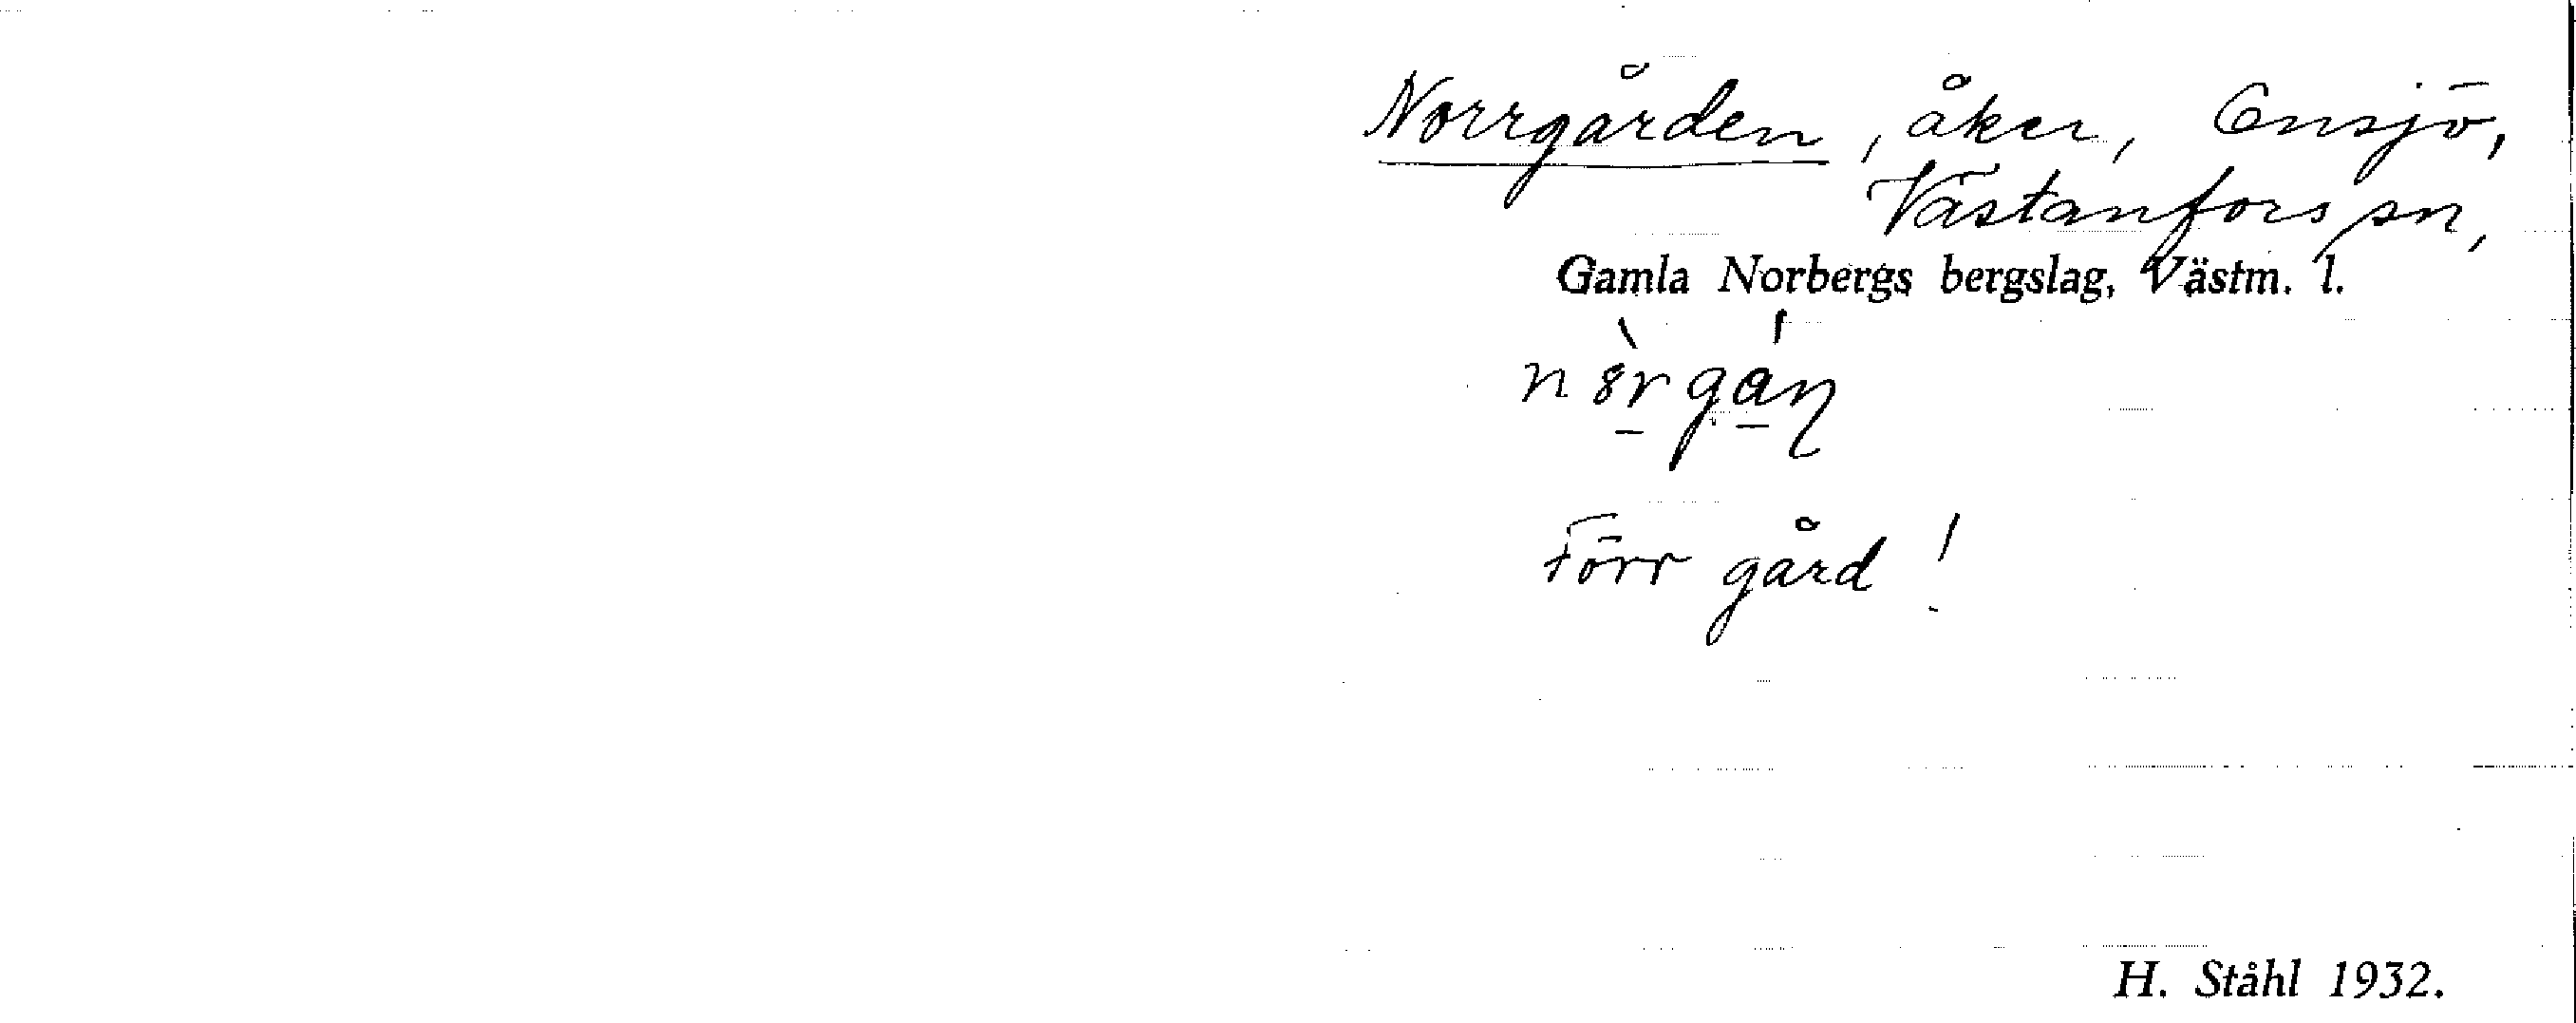 Norrgården, åker, Ensjö,
Västanfors sn,
Gamla Norbergs bergslag, Västm. l.
Förr gård!
H. Ståhl 1932.